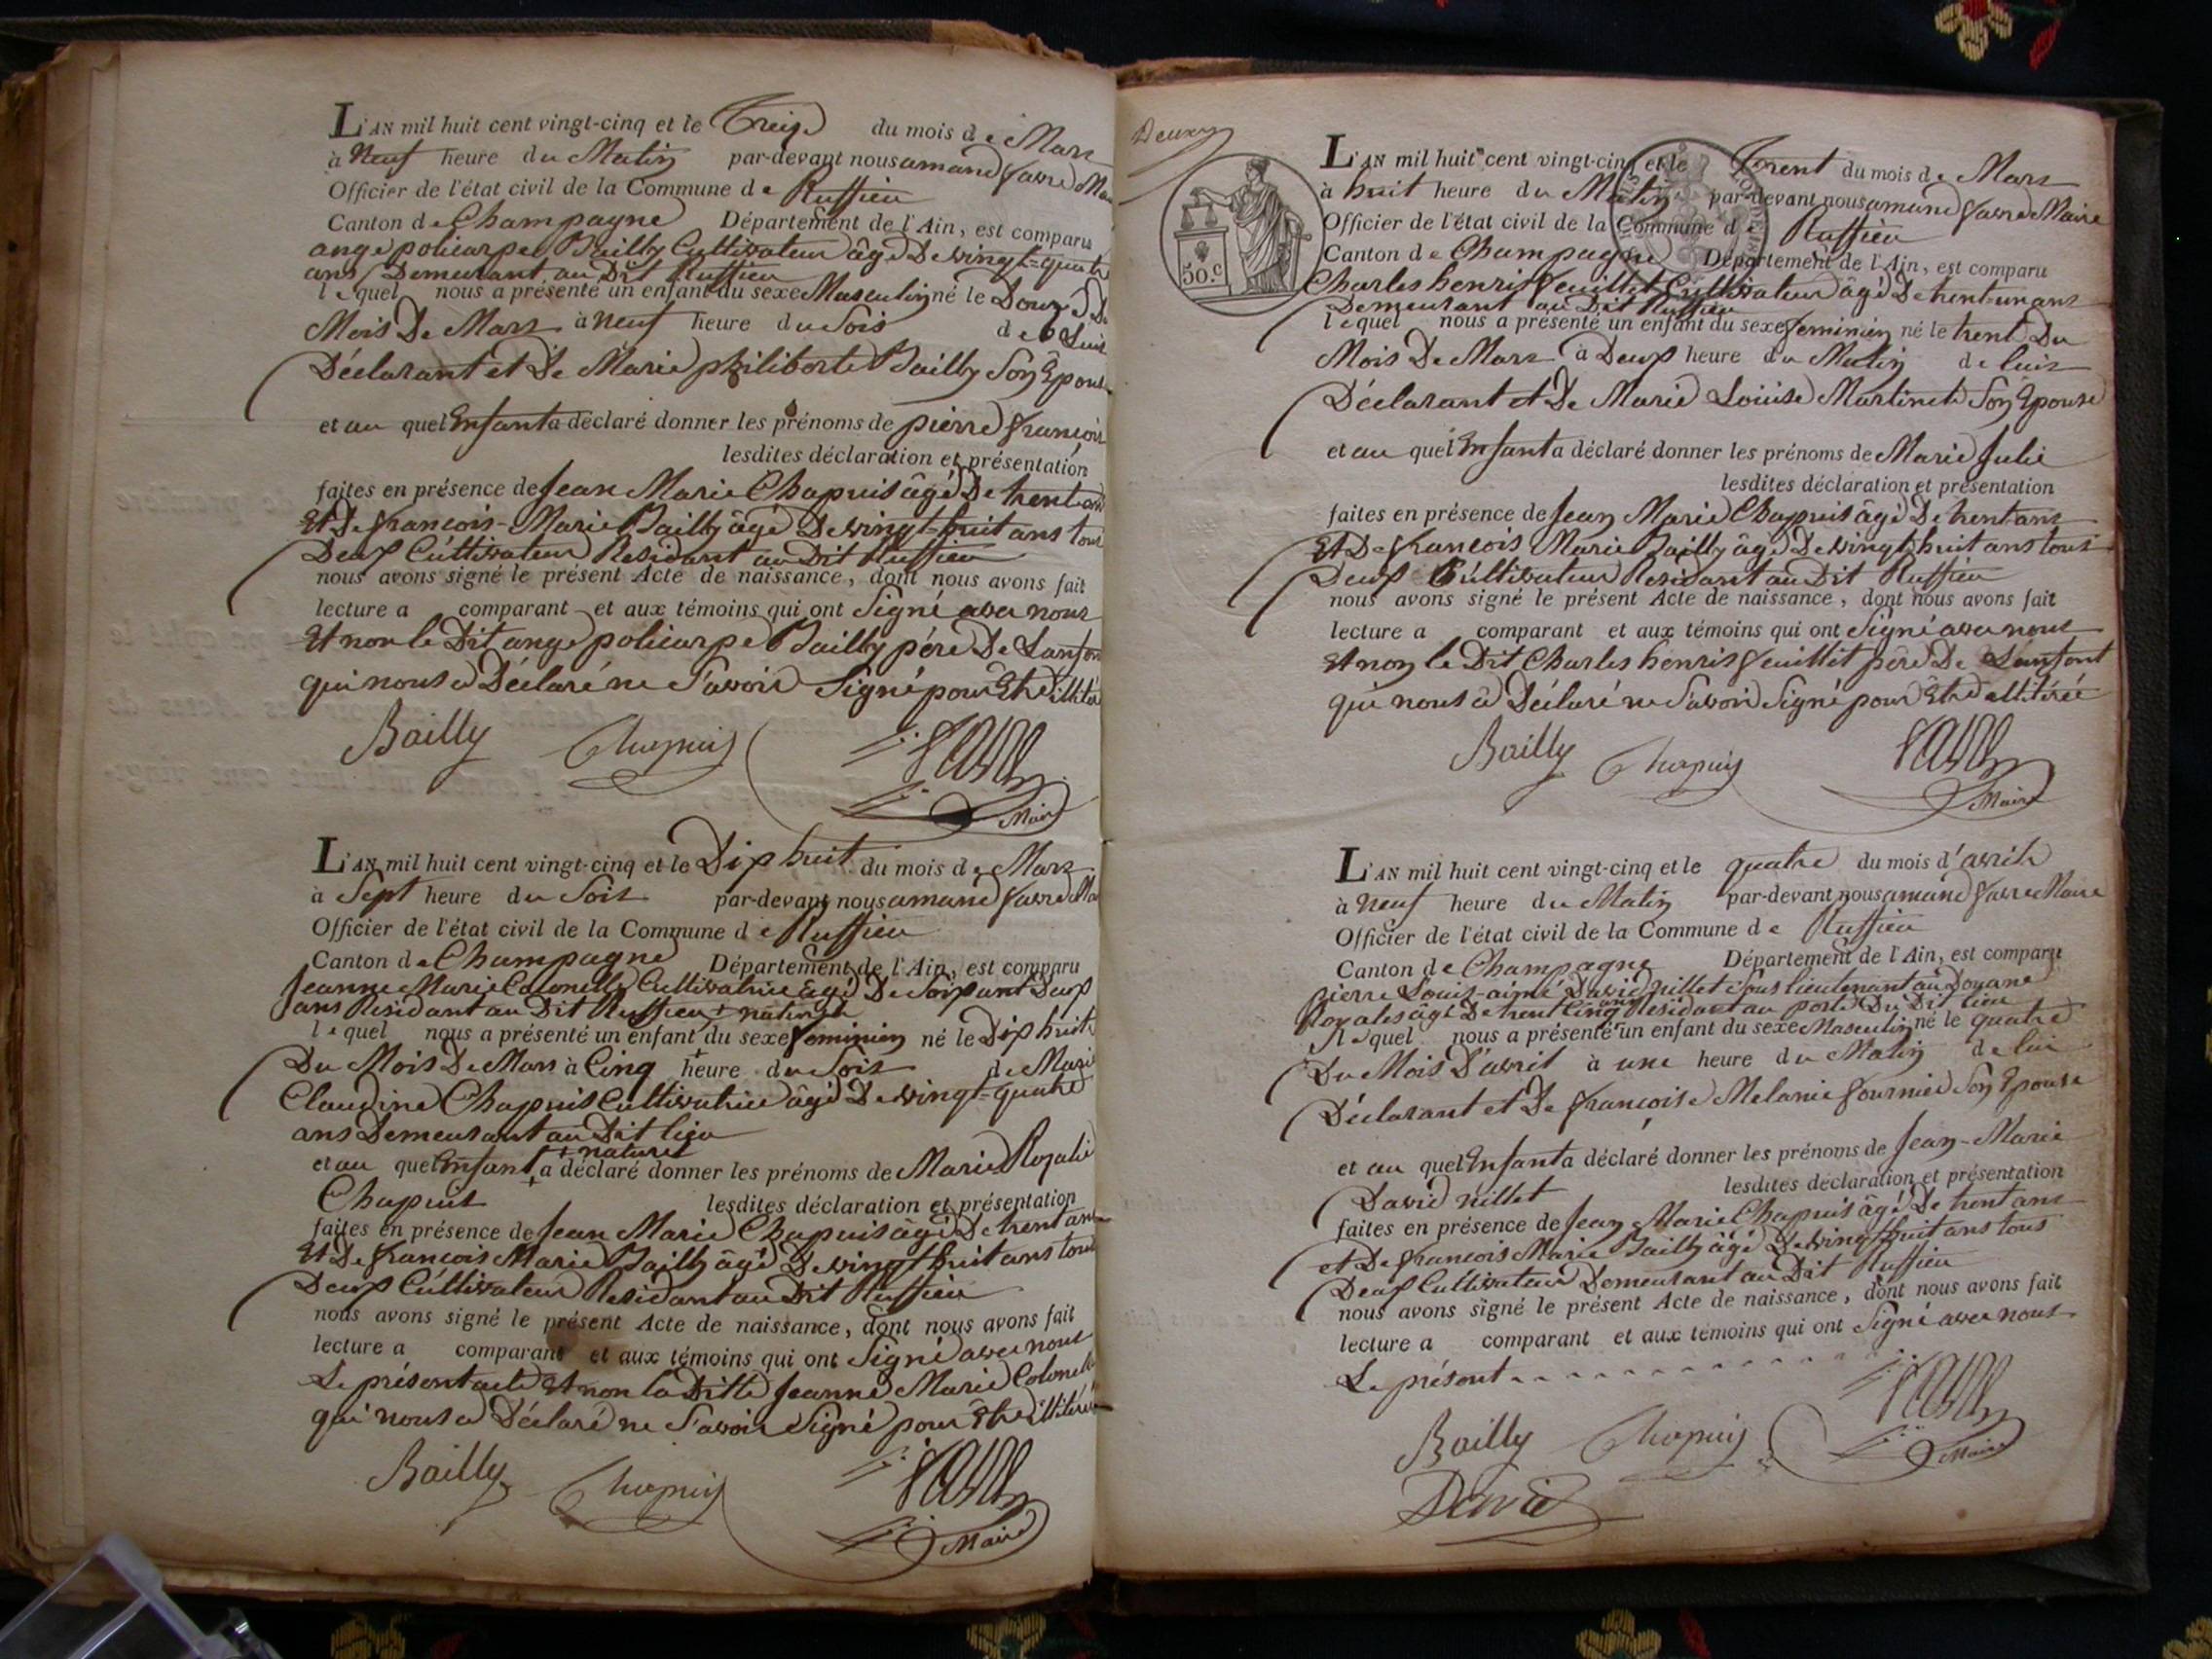 L'AN mil huit cent vingt-cinq et le Treize du mois de Mars
à Neuf heure du Matin par-devant nous amand favre Ma
Officier de l'état civil de la Commune de Ruffieu
Canton de Champagne Département de l'Ain, est comparu
ange policarpe Bailly Cultivateur âgé De vingt=quatre
ans Demeurant au Dit Ruffieu
lequel nous a présenté un enfant du sexe Masculin né le Douze De
Mois De Mars à neuf heure du Soir de Luis
Déclarant et De Marie philiberte Bailly Son Epouse
et au quel Enfant a déclaré donner les prénoms de pierre françois
lesdites déclaration et présentation
faites en présence de Jean Marie Chapuis âgé De trent ans
Et De françois-Marie Bailly âgé De vingt-huit ans tous
Deux Cultivateur Residant au Dit Ruffieu
nous avons signé le présent Acte de naissance, dont nous avons fait
lecture a comparant et aux témoins qui ont Signé avec nous
Et non le Dit ange policarpe Bailly père De Lanfont
qui nous a Déclaré ne Savoir Signé pour Etre illitéré
Bailly Chapuis favre
Maire
L'AN mil huit cent vingt-cinq et le Dix huit du mois de Mars
à Sept heure du Soir par-devant nous amand favre Ma
Officier de l'état civil de la Commune de Ruffieu
Canton de Champagne Département de l'Ain, est comparu
Jeanne Marie Colonelle Cultivatrice âgé De Soixant Deux
ans Residant au Dit Ruffieu + naturel
lequel nous a présenté un enfant du sexe feminien né le Dix huit
Du Mois De Mars à Cinq heure du Soir de Marie
Claudine Chapuis Cultivatrice âgé De vingt=quatre
ans Demeurant au Dit lieu
+ naturel
et au quel Enfant + a déclaré donner les prénoms de Marie Rozalie
Chapuis lesdites déclaration et présentation
faites en présence de Jean Marie Chapuis âgé De trent ans
Et De françois Marie Bailly âgé De vingt huit ans tous
Deux Cultivateur Residant au Dit Ruffieu
nous avons signé le présent Acte de naissance, dont nous avons fait
lecture a comparant et aux témoins qui ont Signé avec nous
Le présent acte Et non la Ditte Jeanne Marie Colonelle
qui nous a Déclaré ne Savoir Signé pour Etre illitéré
Bailly Chapuis favre
Maire
Deux
50.c
L'AN mil huit cent vingt-cinq et le Trent du mois de Mars
à huit heure du Matin par-devant nous amand favre Maire
Officier de l'état civil de la Commune de Ruffieu
Canton de Champagne Département de l'Ain, est comparu
Charles henris feuillet Cultivateur âgé De trent-un ans
Demeurant au Dit Ruffieu
lequel nous a présenté un enfant du sexe feminien né le trent Du
Mois De Mars à Deux heure du Matin de luis
Déclarant et De Marie Louise Martinet Son Epouse
et au quel Enfant a déclaré donner les prénoms de Marie Julie
lesdites déclaration et présentation
faites en présence de Jean Marie Chapuis âgé De trent ans
Et De françois Marie Bailly âgé De vingt huit ans tous
Deux Cultivateur Residant au Dit Ruffieu
nous avons signé le présent Acte de naissance, dont nous avons fait
lecture a comparant et aux témoins qui ont Signé avec nous
Et non le Dit Charles henris feuillet père De Lanfont
qui nous a Déclaré ne Savoir Signé pour Etre illitéré
Bailly Chapuis favre
Maire
L'AN mil huit cent vingt-cinq et le quatre du mois d'avril
à neuf heure du Matin par-devant nous amand favre Maire
Officier de l'état civil de la Commune de Ruffieu
Canton de Champagne Département de l'Ain, est comparu
pierre Louis-aimé David nillet Sous lieutenant au Douane
Royales âgé De trent Cinq ans Residant au poste Du Dit lieu
lequel nous a présenté un enfant du sexe Masculin né le quatre
Du Mois D'avril à une heure du Matin de lui
Déclarant et De françoise Melanie fournier Son Epouse
et au quel Enfant a déclaré donner les prénoms de Jean-Marie
David nillet lesdites déclaration et présentation
faites en présence de Jean Marie Chapuis âgé De trent ans
et De françois Marie Bailly âgé De vingt huit ans tous
Deux Cultivateur Demeurant au Dit Ruffieu
nous avons signé le présent Acte de naissance, dont nous avons fait
lecture a comparant et aux témoins qui ont Signé avec nous
Le présent
Bailly Chapuis favre
Maire
David